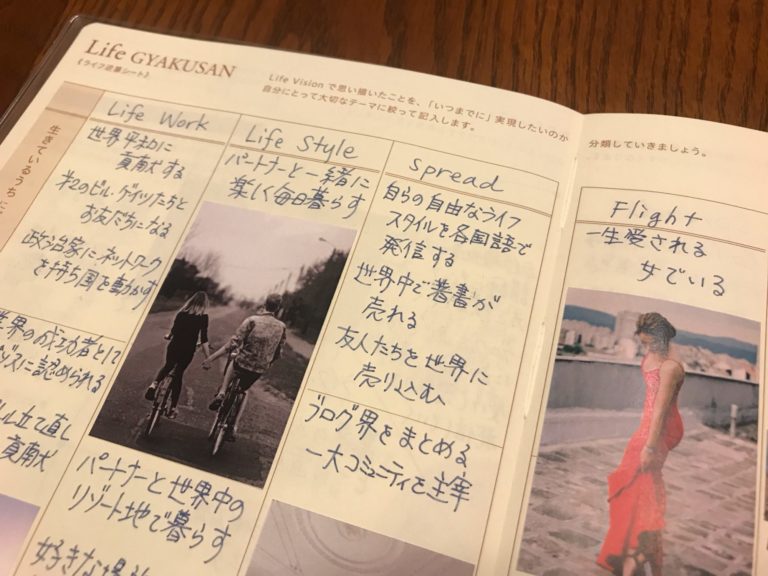 Life GYAKUSAN
《ライフ逆算シート》
Life Vision で思い描いたことを、「いつまでに」実現したいのか
自分にとって大切なテーマに絞って記入します。
分類していきましょう。
生きているうちに
Life Work
世界平和に
貢献する
第2のビル・ゲイツたちと
お友だちになる
政治家にネットワーク
を持ち国を動かす
世界の成功者として
に認められる
立て直し
貢献
Life Style
パートナーと一緒に
楽しく毎日暮らす
パートナーと世界中の
リゾート地で暮らす
好きな場所
spread
自らの自由なライフ
スタイルを各国語で
発信する
世界中で著書が
売れる
友人たちを世界に
売り込む
ブログ界をまとめる
一大コミュニティを主宰
Flight
一生愛される
女でいる